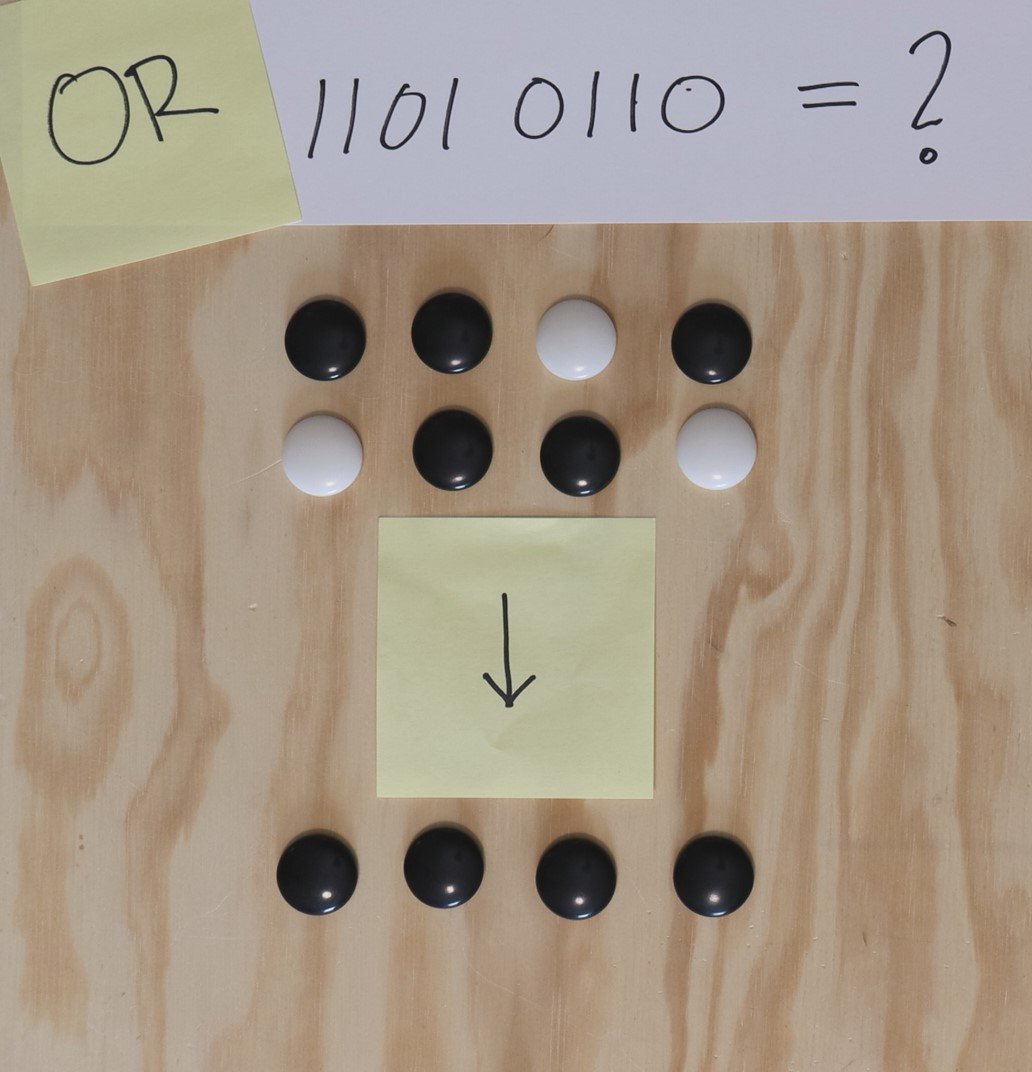 OR 1101 0110 = ?
↓